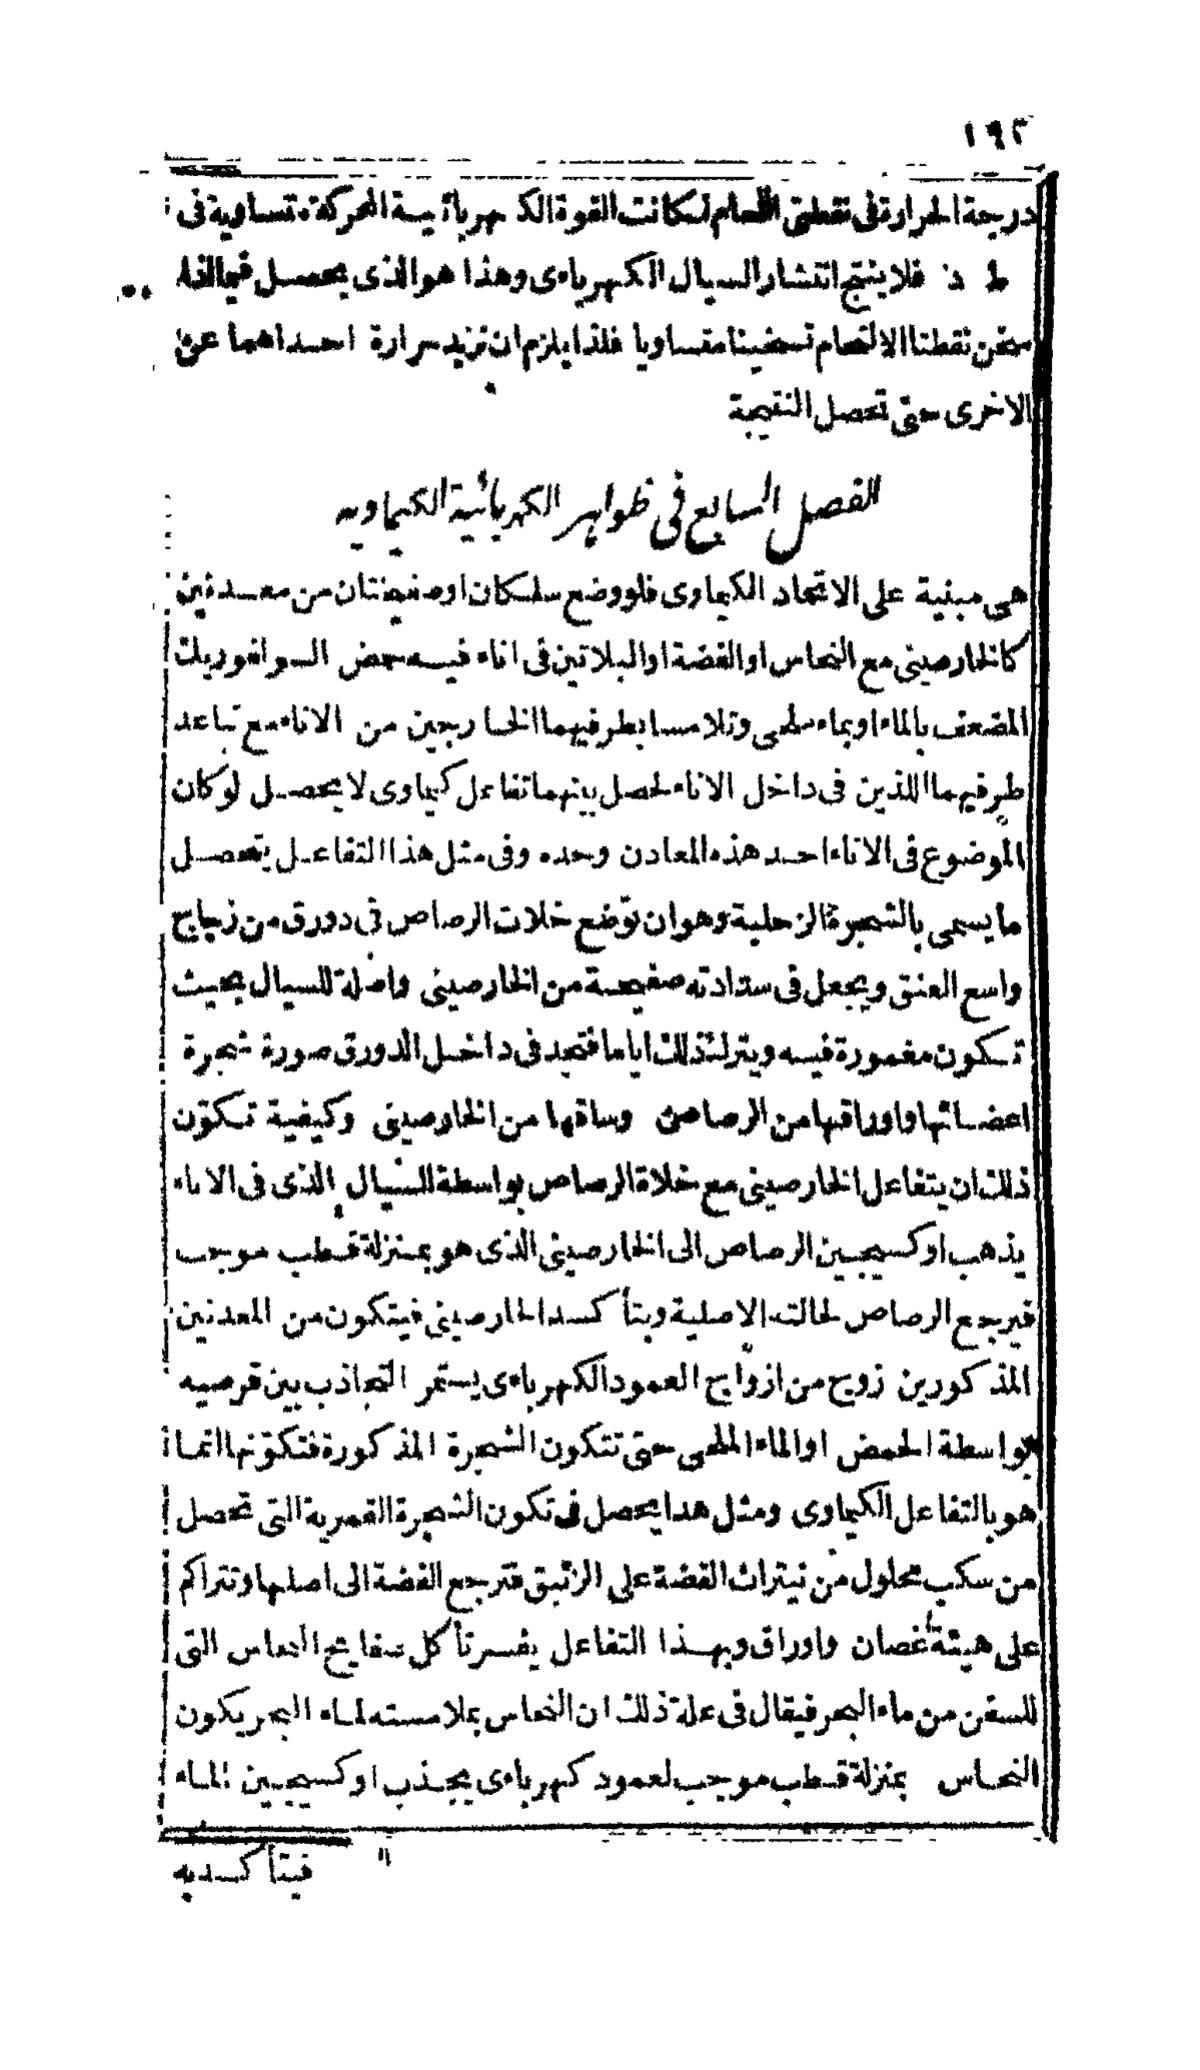 ١٩٢
درجة الحرارة فى نقطتى التحام لكانت القوة الكهربائية المحركة متساوية فى
ط د فلا ينتج انتشار السيال الكهرباءى وهذا هو الذى يحصل فيما اذا
سخن نقطتا الالتحام تسخينا متساويا فلذا يلزم ان تزيد حرارة احداهما عن
الاخرى حتى تحصل النتيجة
الفصل السابع فى ظواهر الكهربائية الكيماويه
هى مبنية على الاتحاد الكيماوى فلو وضع سلكان او صفيحتان من معدنين
كالخارصينى مع النحاس او الفضة او البلاتين فى اناء فيه حمض السولفوريك
المضعف بالماء او بماء ملحى وتلامسا بطرفيهما الخارجين من الاناء مع تباعد
طرفيهما اللذين فى داخل الاناء لحصل بينهما تفاعل كيماوى لا يحصل لو كان
الموضوع فى الاناء احد هذه المعادن وحده وفى مثل هذا التفاعل يتحصل
ما يسمى بالشجرة الزحلية وهو ان توضع خلات الرصاص فى دورق من زجاج
واسع العنق ويجعل فى سدادته صفيحة من الخارصينى واصلة للسيال بحيث
تكون مغمورة فيه ويترك ذلك اياما فتجد فى داخل الدورق صورة شجرة
اعضائها واوراقها من الرصاص وساقها من الخارصينى وكيفية تكوّن
ذلك ان يتفاعل الخارصينى مع خلاة الرصاص بواسطة السيال الذى فى الاناء
يذهب اوكسيجين الرصاص الى الخارصينى الذى هو بمنزلة قطب موجب
فيرجع الرصاص لحالته الاصلية ويتأكسد الخارصينى فيتكون من المعدنين
المذكورين زوج من ازواج العمود الكهرباءى يستمر التجاذب بين قرصيه
بواسطة الحمض او الماء الملحى حتى تتكون الشجرة المذكورة فتكوّنها انما
هو بالتفاعل الكيماوى ومثل هذا يحصل فى تكون الشجرة القمرية التى تحصل
من سكب محلول من نيترات الفضة على الزئبق فترجع الفضة الى اصلها وتتراكم
على هيئة أغصان واوراق وبهذا التفاعل يفسر تأكل صفايح النحاس التى
للسفن من ماء البحر فيقال فى علة ذلك ان النحاس بملامسته لماء البحر يكون
النحاس بمنزلة قطب موجب لعمود كهرباءى يجذب اوكسيجين الماء
فيتأكسد به